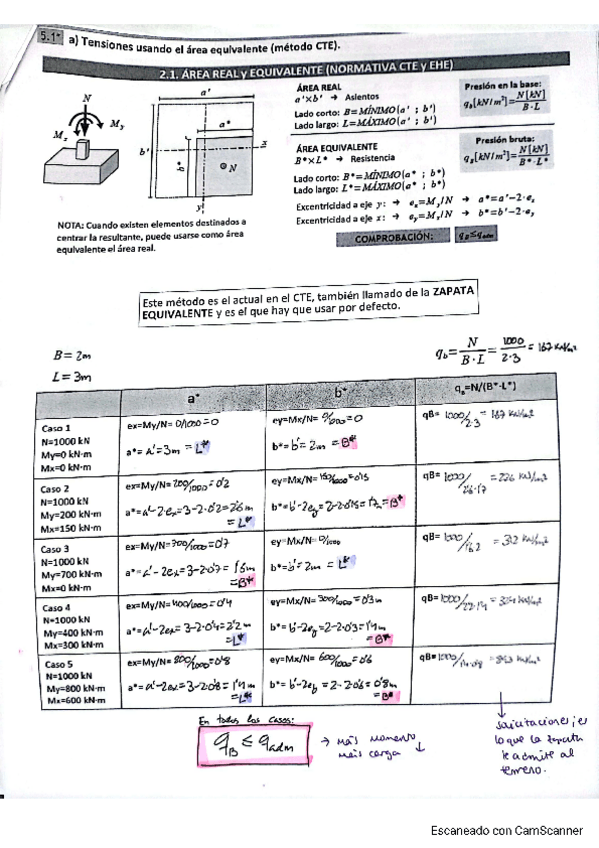 5.1* a) Tensiones usando el área equivalente (método CTE).
2.1. ÁREA REAL y EQUIVALENTE (NORMATIVA CTE y EHE)
N
My
Mx
a'
a*
b'
b*
x
N
y
NOTA: Cuando existen elementos destinados a
centrar la resultante, puede usarse como área
equivalente el área real.
ÁREA REAL
a'×b' → Asientos
Lado corto: B=MÍNIMO(a' ; b')
Lado largo: L=MÁXIMO(a' ; b')
Presión en la base:
qb[kN/m²]=N[kN]/B·L
ÁREA EQUIVALENTE
B*×L* → Resistencia
Lado corto: B*=MÍNIMO(a* ; b*)
Lado largo: L*=MÁXIMO(a* ; b*)
Presión bruta:
qB[kN/m²]=N[kN]/B*·L*
Excentricidad a eje y: → ex=My/N → a*=a'-2·ex
Excentricidad a eje x: → ey=Mx/N → b*=b'-2·ey
COMPROBACIÓN: qB≤qadm
Este método es el actual en el CTE, también llamado de la ZAPATA
EQUIVALENTE y es el que hay que usar por defecto.
B=2m
L=3m
qb= N/B·L = 1000/2·3 = 167 kN/m²
a* b* qB=N/(B*·L*)
Caso 1
N=1000 kN
My=0 kN·m
Mx=0 kN·m
ex=My/N= 0/1000=0
a*= a'=3m = L*
ey=Mx/N= 0/1000=0
b*= b'= 2m = B*
qB= 1000/2·3 = 167 kN/m²
Caso 2
N=1000 kN
My=200 kN·m
Mx=150 kN·m
ex=My/N= 200/1000=0'2
a*=a'-2·ex=3-2·0'2=2'6m
= L*
ey=Mx/N= 150/1000=0'15
b*=b'-2ey=2-2·0'15=1'7m=B*
qB= 1000/2'6·1'7 = 226 kN/m²
Caso 3
N=1000 kN
My=700 kN·m
Mx=0 kN·m
ex=My/N=700/1000=0'7
a*=a'-2ex=3-2·0'7= 1'6m
=B*
ey=Mx/N= 0/1000
b*=b'= 2m = L*
qB= 1000/1'6·2 = 312 kN/m²
Caso 4
N=1000 kN
My=400 kN·m
Mx=300 kN·m
ex=My/N=400/1000=0'4
a*=a'-2ex=3-2·0'4=2'2m
=L*
ey=Mx/N= 300/1000=0'3m
b*= b'-2ey=2-2·0'3=1'4m
=B*
qB= 1000/2'2·1'4 = 324 kN/m²
Caso 5
N=1000 kN
My=800 kN·m
Mx=600 kN·m
ex=My/N= 800/1000=0'8
a*=a'-2ex=3-2·0'8= 1'4m
=L*
ey=Mx/N= 600/1000=0'6
b*= b'-2ey=2-2·0'6=0'8m
=B*
qB=1000/1'4·0'8 = 893 kN/m²
En todos los casos:
qB ≤ qadm
→ más momento
más carga ↓
lo que la zapata
le admite al
terreno.
Escaneado con CamScanner